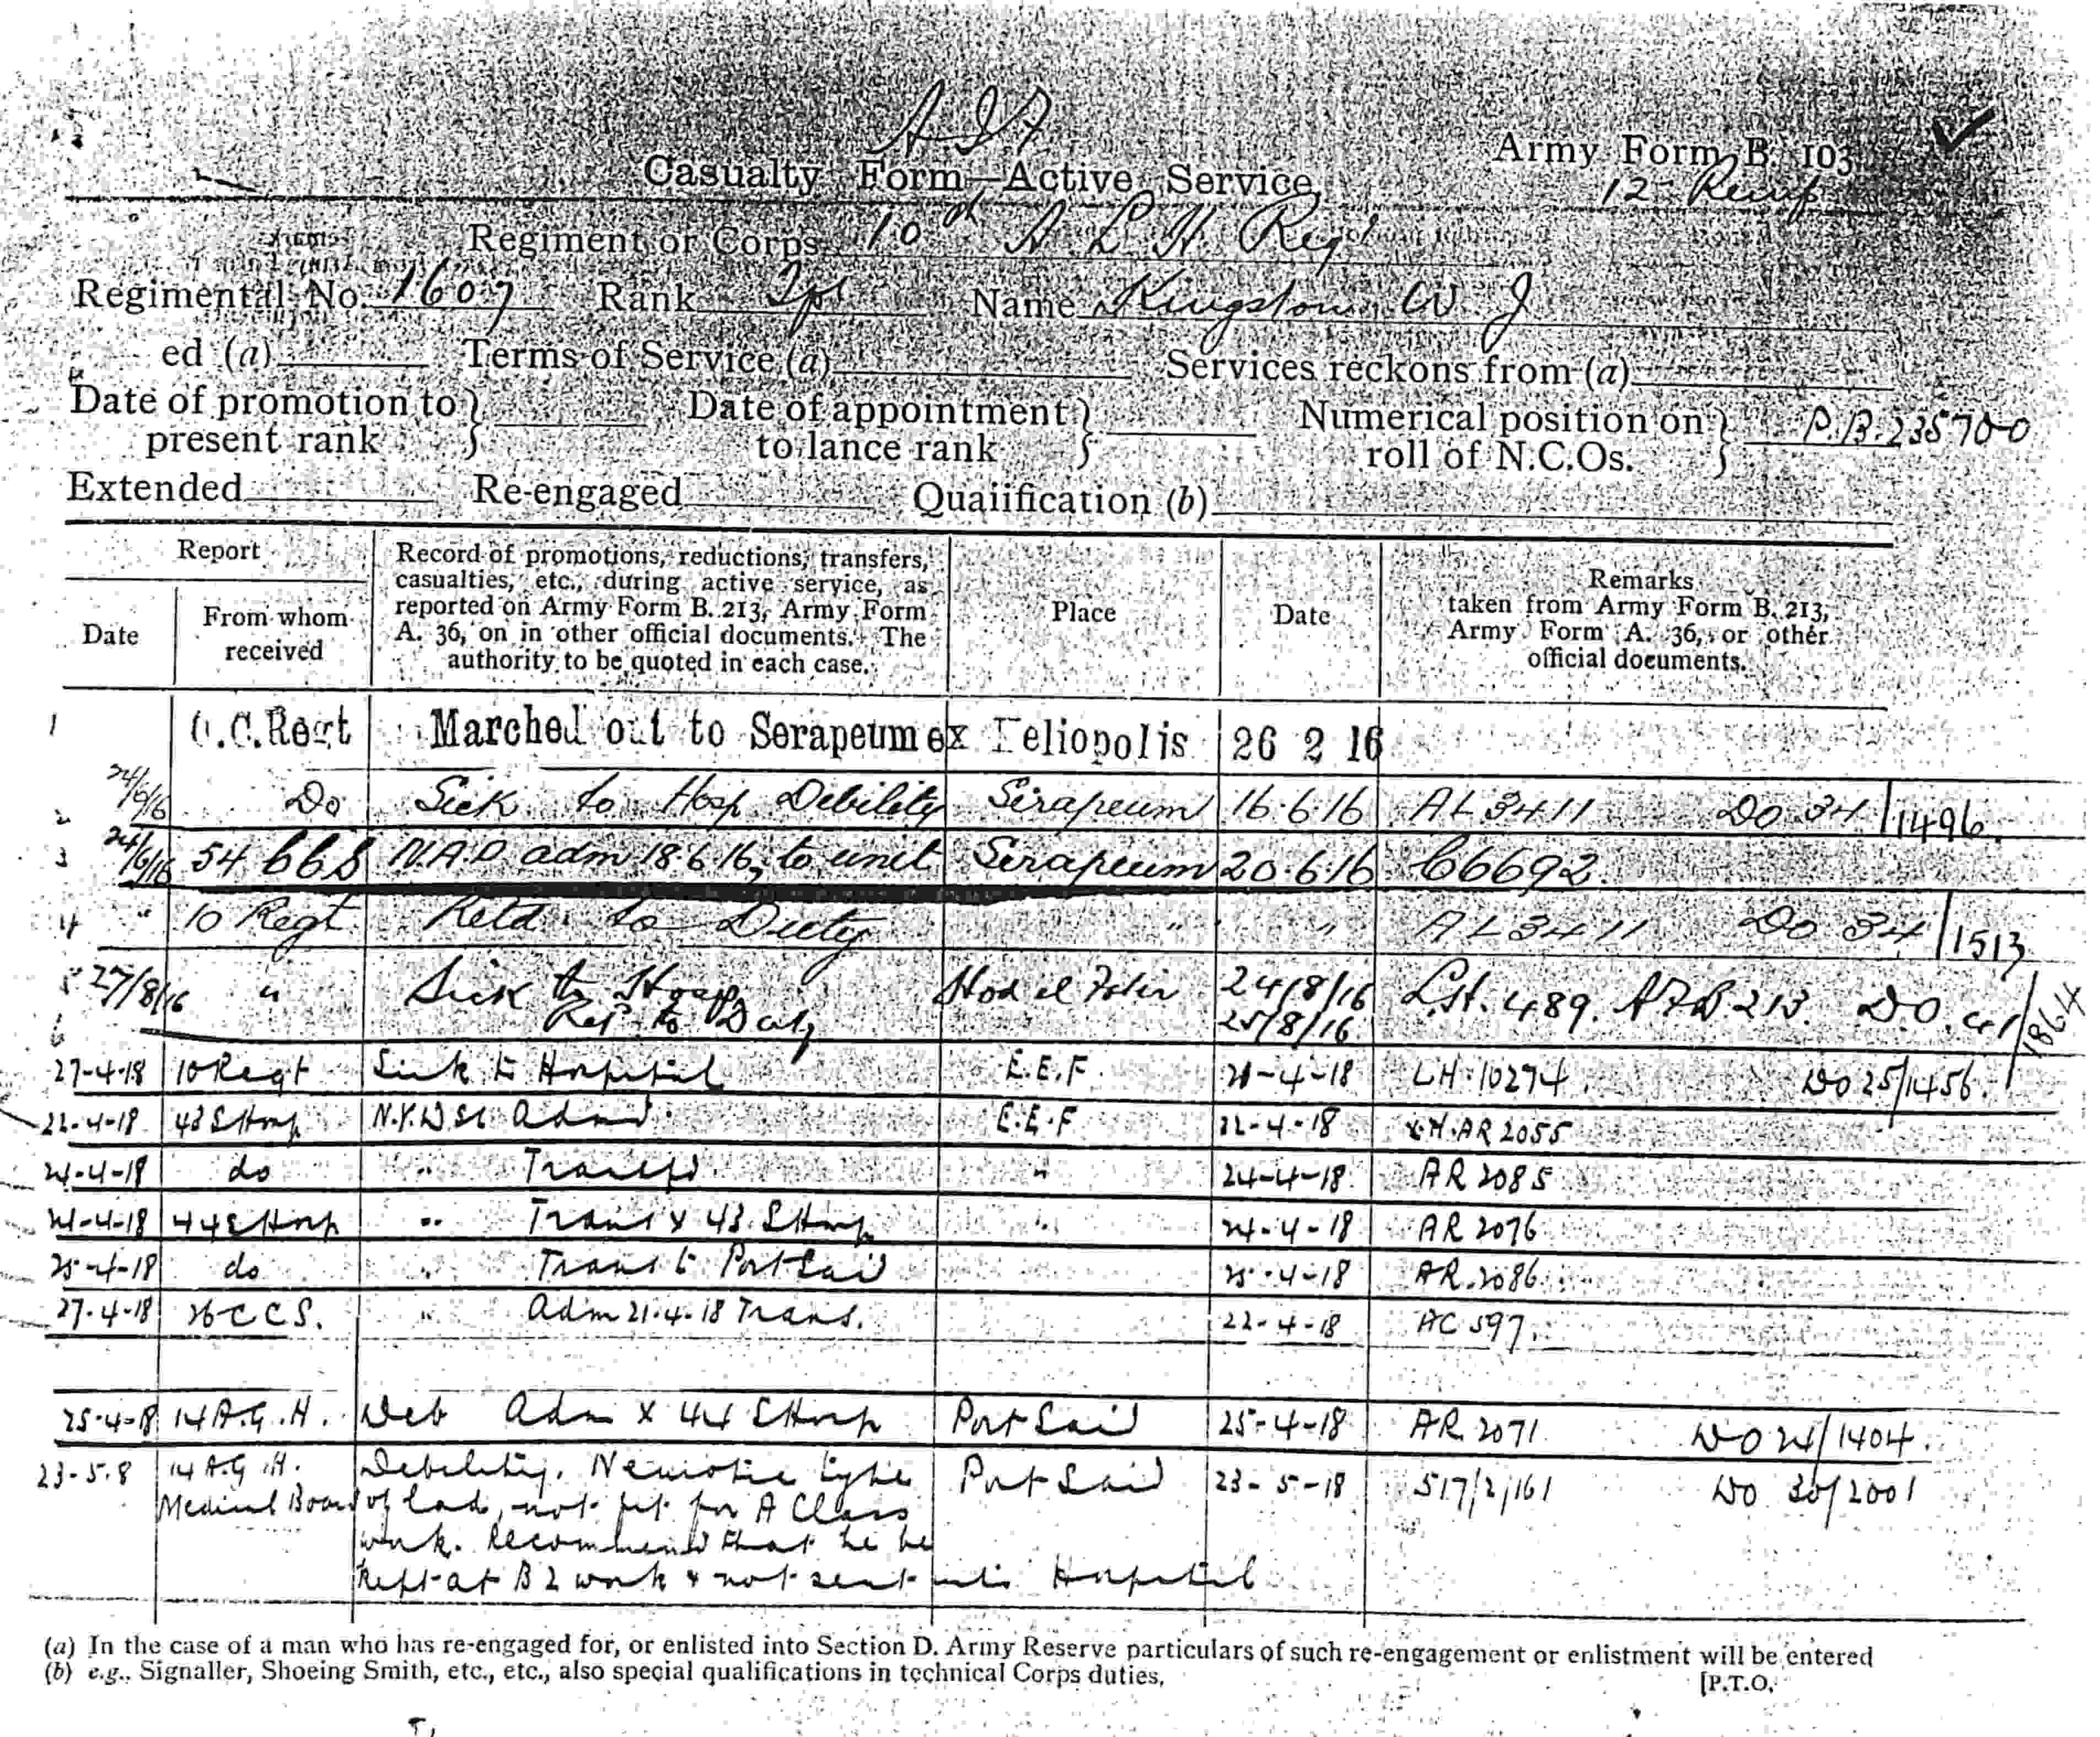 A I F
Army Form B. 103
Casualty Form—Active Service
12 Reinf
Regiment or Corps 10th A L H Regt
Regimental No. 1607 Rank Tpr Name Kingston W. J
ed (a) Terms of Service (a) Services reckons from (a)
Date of promotion to present rank } Date of appointment to lance rank } Numerical position on roll of N.C.Os. } P.B. 235700
Extended Re-engaged Qualification (b)
Report
Date
From whom received
Record of promotions, reductions, transfers,
casualties, etc., during active service, as
reported on Army Form B. 213, Army Form
A. 36, on in other official documents. The
authority to be quoted in each case.
Place
Date
Remarks
taken from Army Form B. 213,
Army Form A. 36, or other
official documents.
1 O.C. Regt Marched out to Serapeum ex Heliopolis 26 2 16
2 24/6/16 Do Sick to Hosp Debility Serapeum 16.6.16 AL3411 Do 34/1496
3 24/6/16 54 N.A.D adm 18.6.16, to unit Serapeum 20.6.16 C6692
4 " 10 Regt Retd to Duty " " AL3411 Do 34/1513
5 27/8/16 " Sick to Hosp Hod el 24/8/16 Lst. 489. AFB 213. D.O. 41/1864
6 Ret to Duty 25/8/16
27-4-18 10 Regt Sick to Hospital E.E.F. 21-4-18 LH.10274 DO 25/1456
22-4-18 43 S Hosp N.Y.D Sl Admd. E.E.F 22-4-18 AR 2055
24-4-18 do " Transfd. " 24-4-18 AR 2085
24-4-18 44 S Hosp " Trans x 43 S Hosp " 24-4-18 AR 2076
25-4-18 do " Trans to Port Said 25-4-18 AR.2086
27-4-18 26 C C S. " Adm 21.4.18 Trans. 22-4-18 AC 597.
25-4-18 14 A.G.H. Deb Adm x 44 S Hosp Port Said 25-4-18 AR 2071 DO 24/1404.
23-5-8 14 A.G.H. Debility. Neurotic type Port Said 23-5-18 517/2/161 DO 30/2001
Medical Board of lad, not fit for A Class
work. Recommend that he be
kept at B2 work & not sent into Hospital
(a) In the case of a man who has re-engaged for, or enlisted into Section D. Army Reserve particulars of such re-engagement or enlistment will be entered
(b) e.g., Signaller, Shoeing Smith, etc., etc., also special qualifications in technical Corps duties.
[P.T.O.